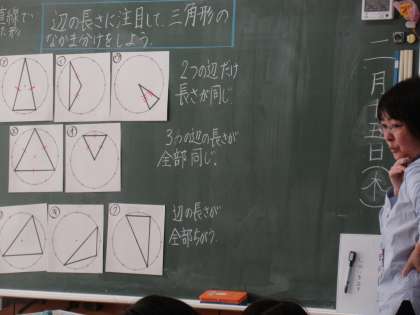 直線で
辺の長さに注目して、三角形の
なかま分けをしよう。
2つの辺だけ
長さが同じ
3つの辺の長さが
全部同じ。
辺の長さが
全部ちがう。
二月十五日(木)